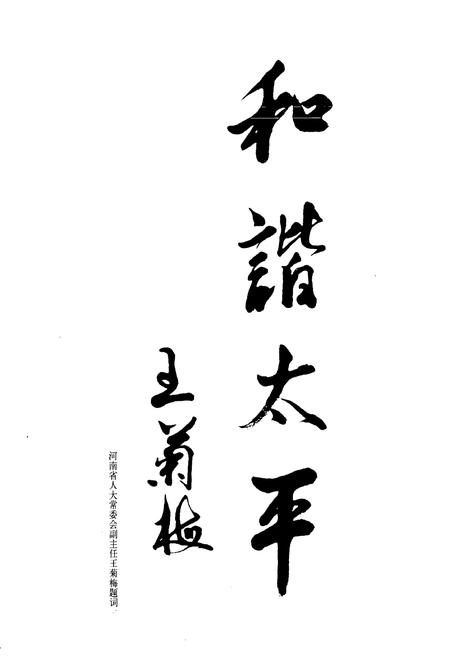 和諧太平
王菊梅
河南省人大常委会副主任王菊梅题词